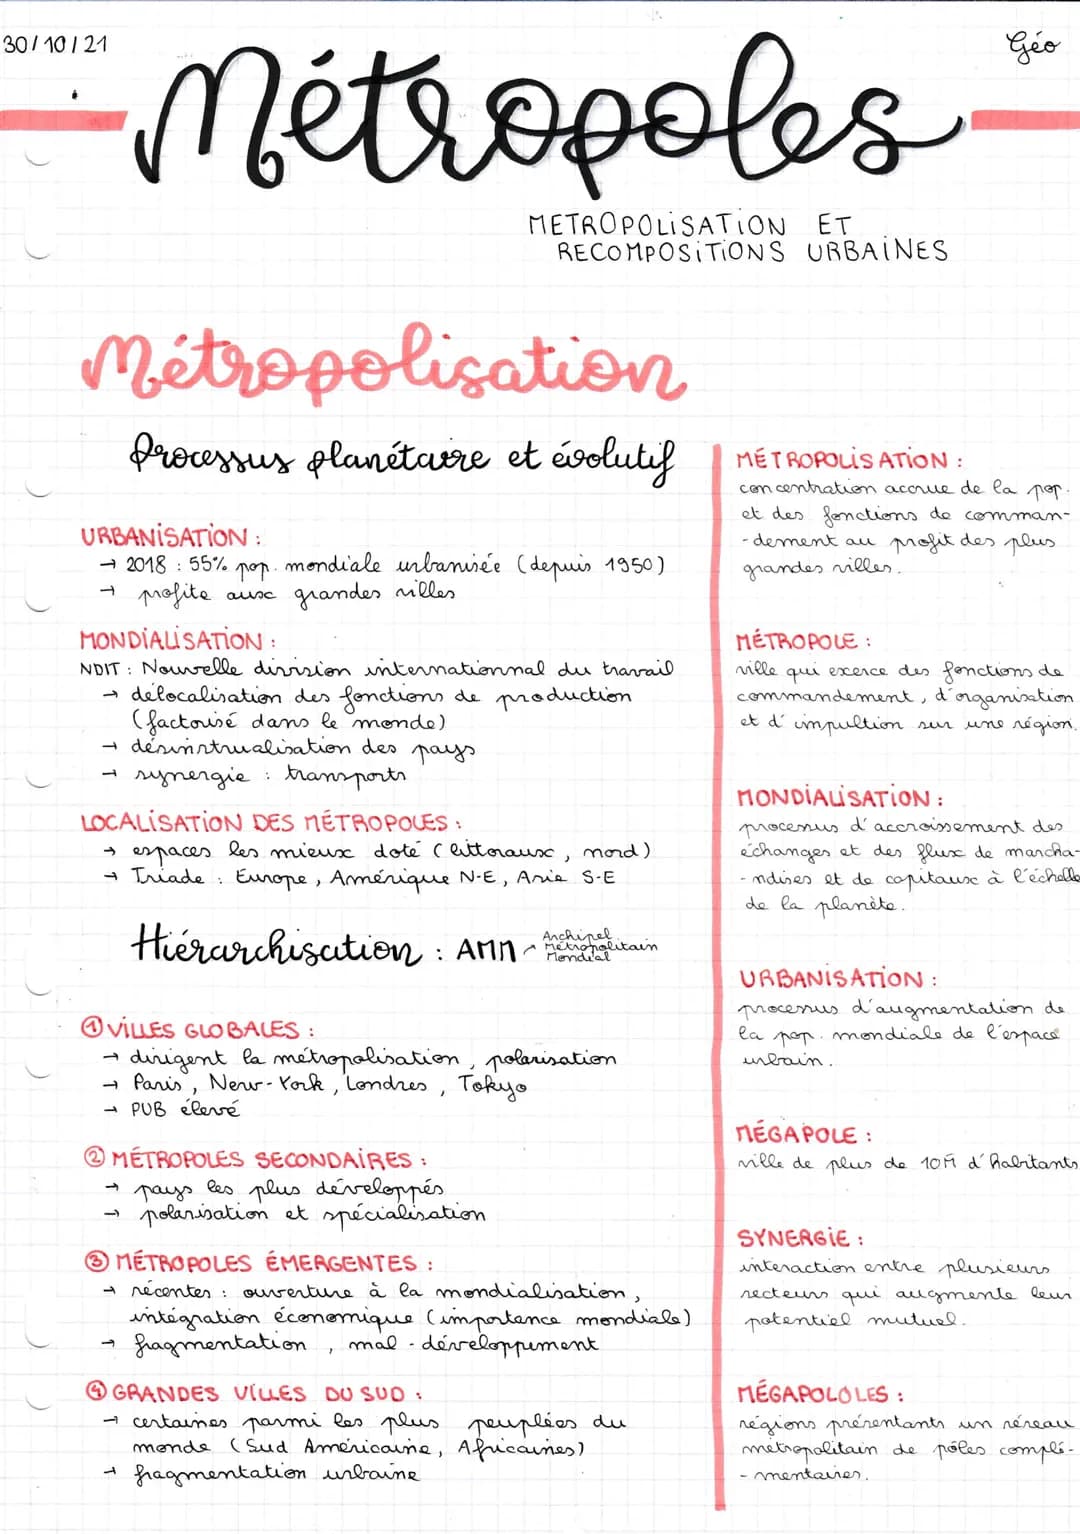 30/10/21
Géo
Métropoles
METROPOLISATION ET
RECOMPOSITIONS URBAINES
Métropolisation
Processus planétaire et évolutif
URBANISATION :
→ 2018 : 55% pop. mondiale urbanisée (depuis 1950)
→ profite aux grandes villes
MONDIALISATION :
NDIT : Nouvelle division internationnal du travail
→ délocalisation des fonctions de production
(factorisé dans le monde)
→ désinstrualisation des pays
→ synergie : transports
LOCALISATION DES MÉTROPOLES :
→ espaces les mieux doté (littoraux, nord)
→ Triade : Europe, Amérique N-E, Asie S-E
Hiérarchisation : AMM → Archipel
Métropolitain
Mondial
① VILLES GLOBALES :
→ dirigent la métropolisation, polarisation
→ Paris, New-York, Londres, Tokyo
→ PUB élevé
② MÉTROPOLES SECONDAIRES :
→ pays les plus développés
→ polarisation et spécialisation
③ MÉTROPOLES ÉMERGENTES :
→ récentes : ouverture à la mondialisation,
intégration économique (importance mondiale)
→ fragmentation, mal-développement
④ GRANDES VILLES DU SUD :
→ certaines parmi les plus peuplées du
monde (Sud Américaine, Africaines)
→ fragmentation urbaine
MÉTROPOLISATION :
concentration accrue de la pop.
et des fonctions de comman-
-dement au profit des plus
grandes villes.
MÉTROPOLE :
ville qui exerce des fonctions de
commandement, d'organisation
et d'impultion sur une région.
MONDIALISATION :
processus d'accroissement des
échanges et des flux de marcha-
-ndises et de capitaux à l'échelle
de la planète.
URBANISATION :
processus d'augmentation de
la pop. mondiale de l'espace
urbain.
MÉGAPOLE :
ville de plus de 10M d'habitants
SYNERGIE :
interaction entre plusieurs
secteurs qui augmente leur
potentiel mutuel.
MÉGAPOLOLES :
régions présentants un réseau
métropolitain de pôles complé-
-mentaires.